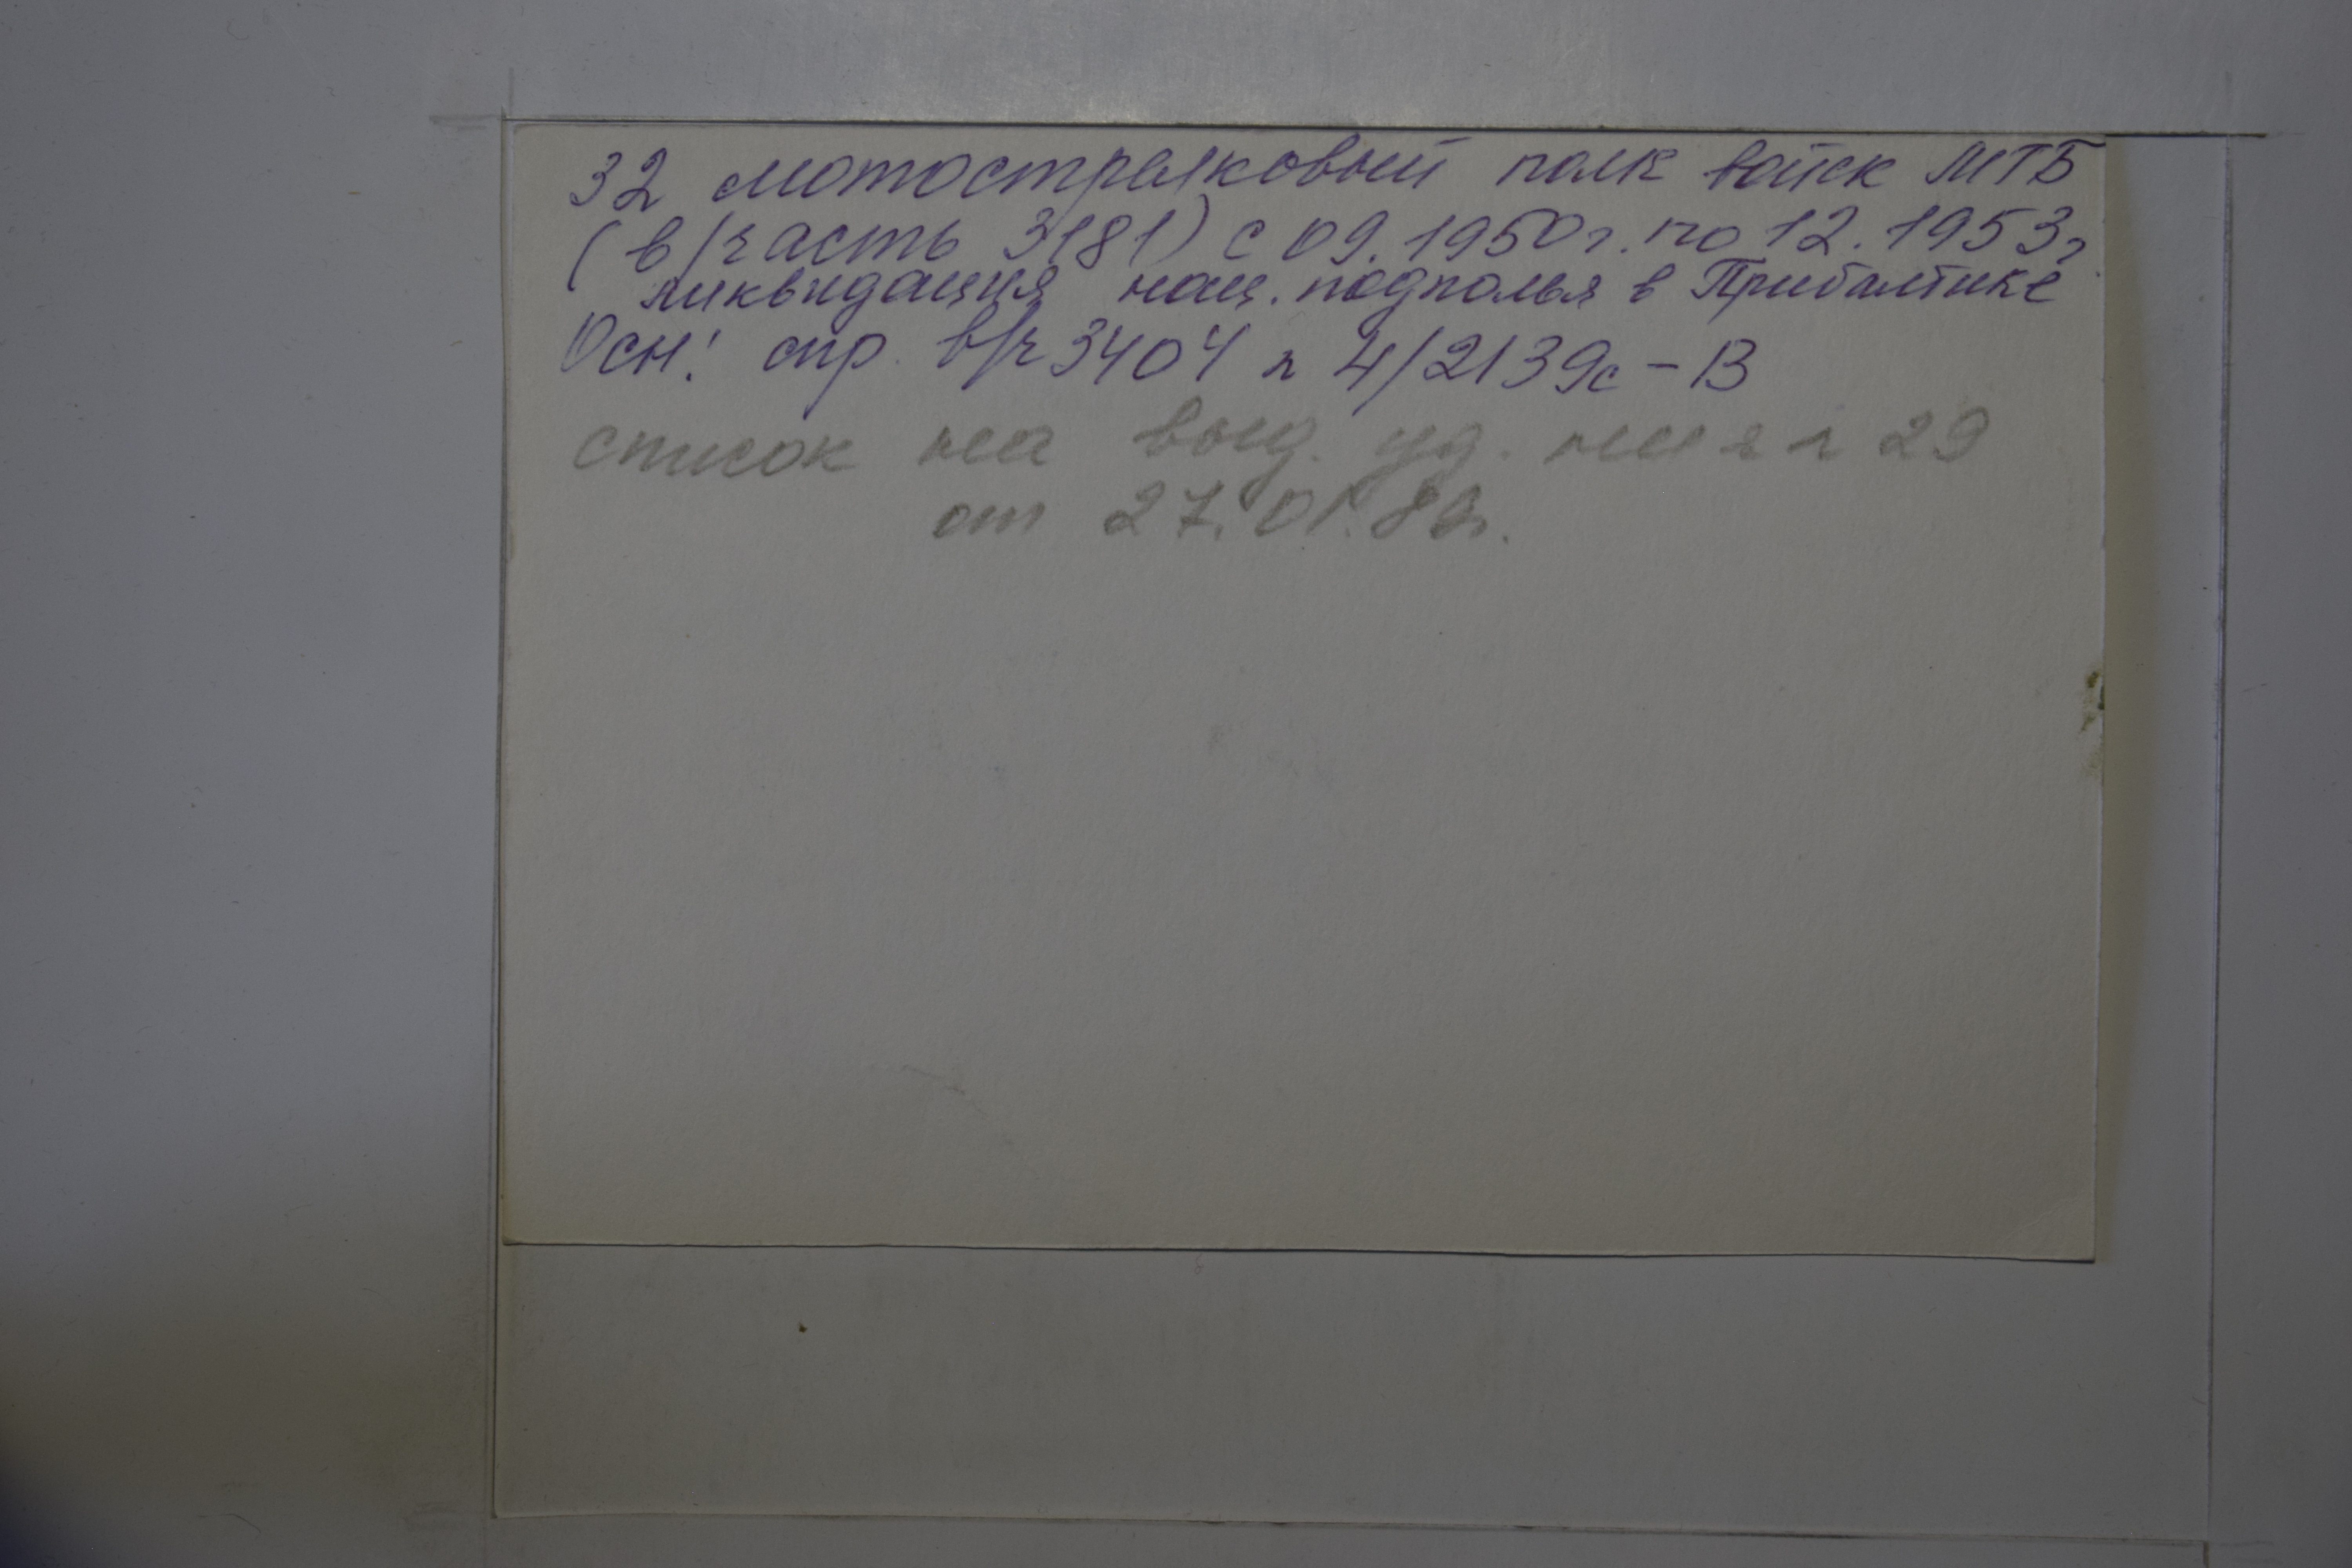 32 мотострелковый полк войск МГБ
(в/часть 3181) с 09.1950г. по 12.1953г
ликвидация нац. подполья в Прибалтике
Осн: спр. в/ч 3404 п 4/2139с-В
список на выд. уд. ния п 29
от 27.01.82г.